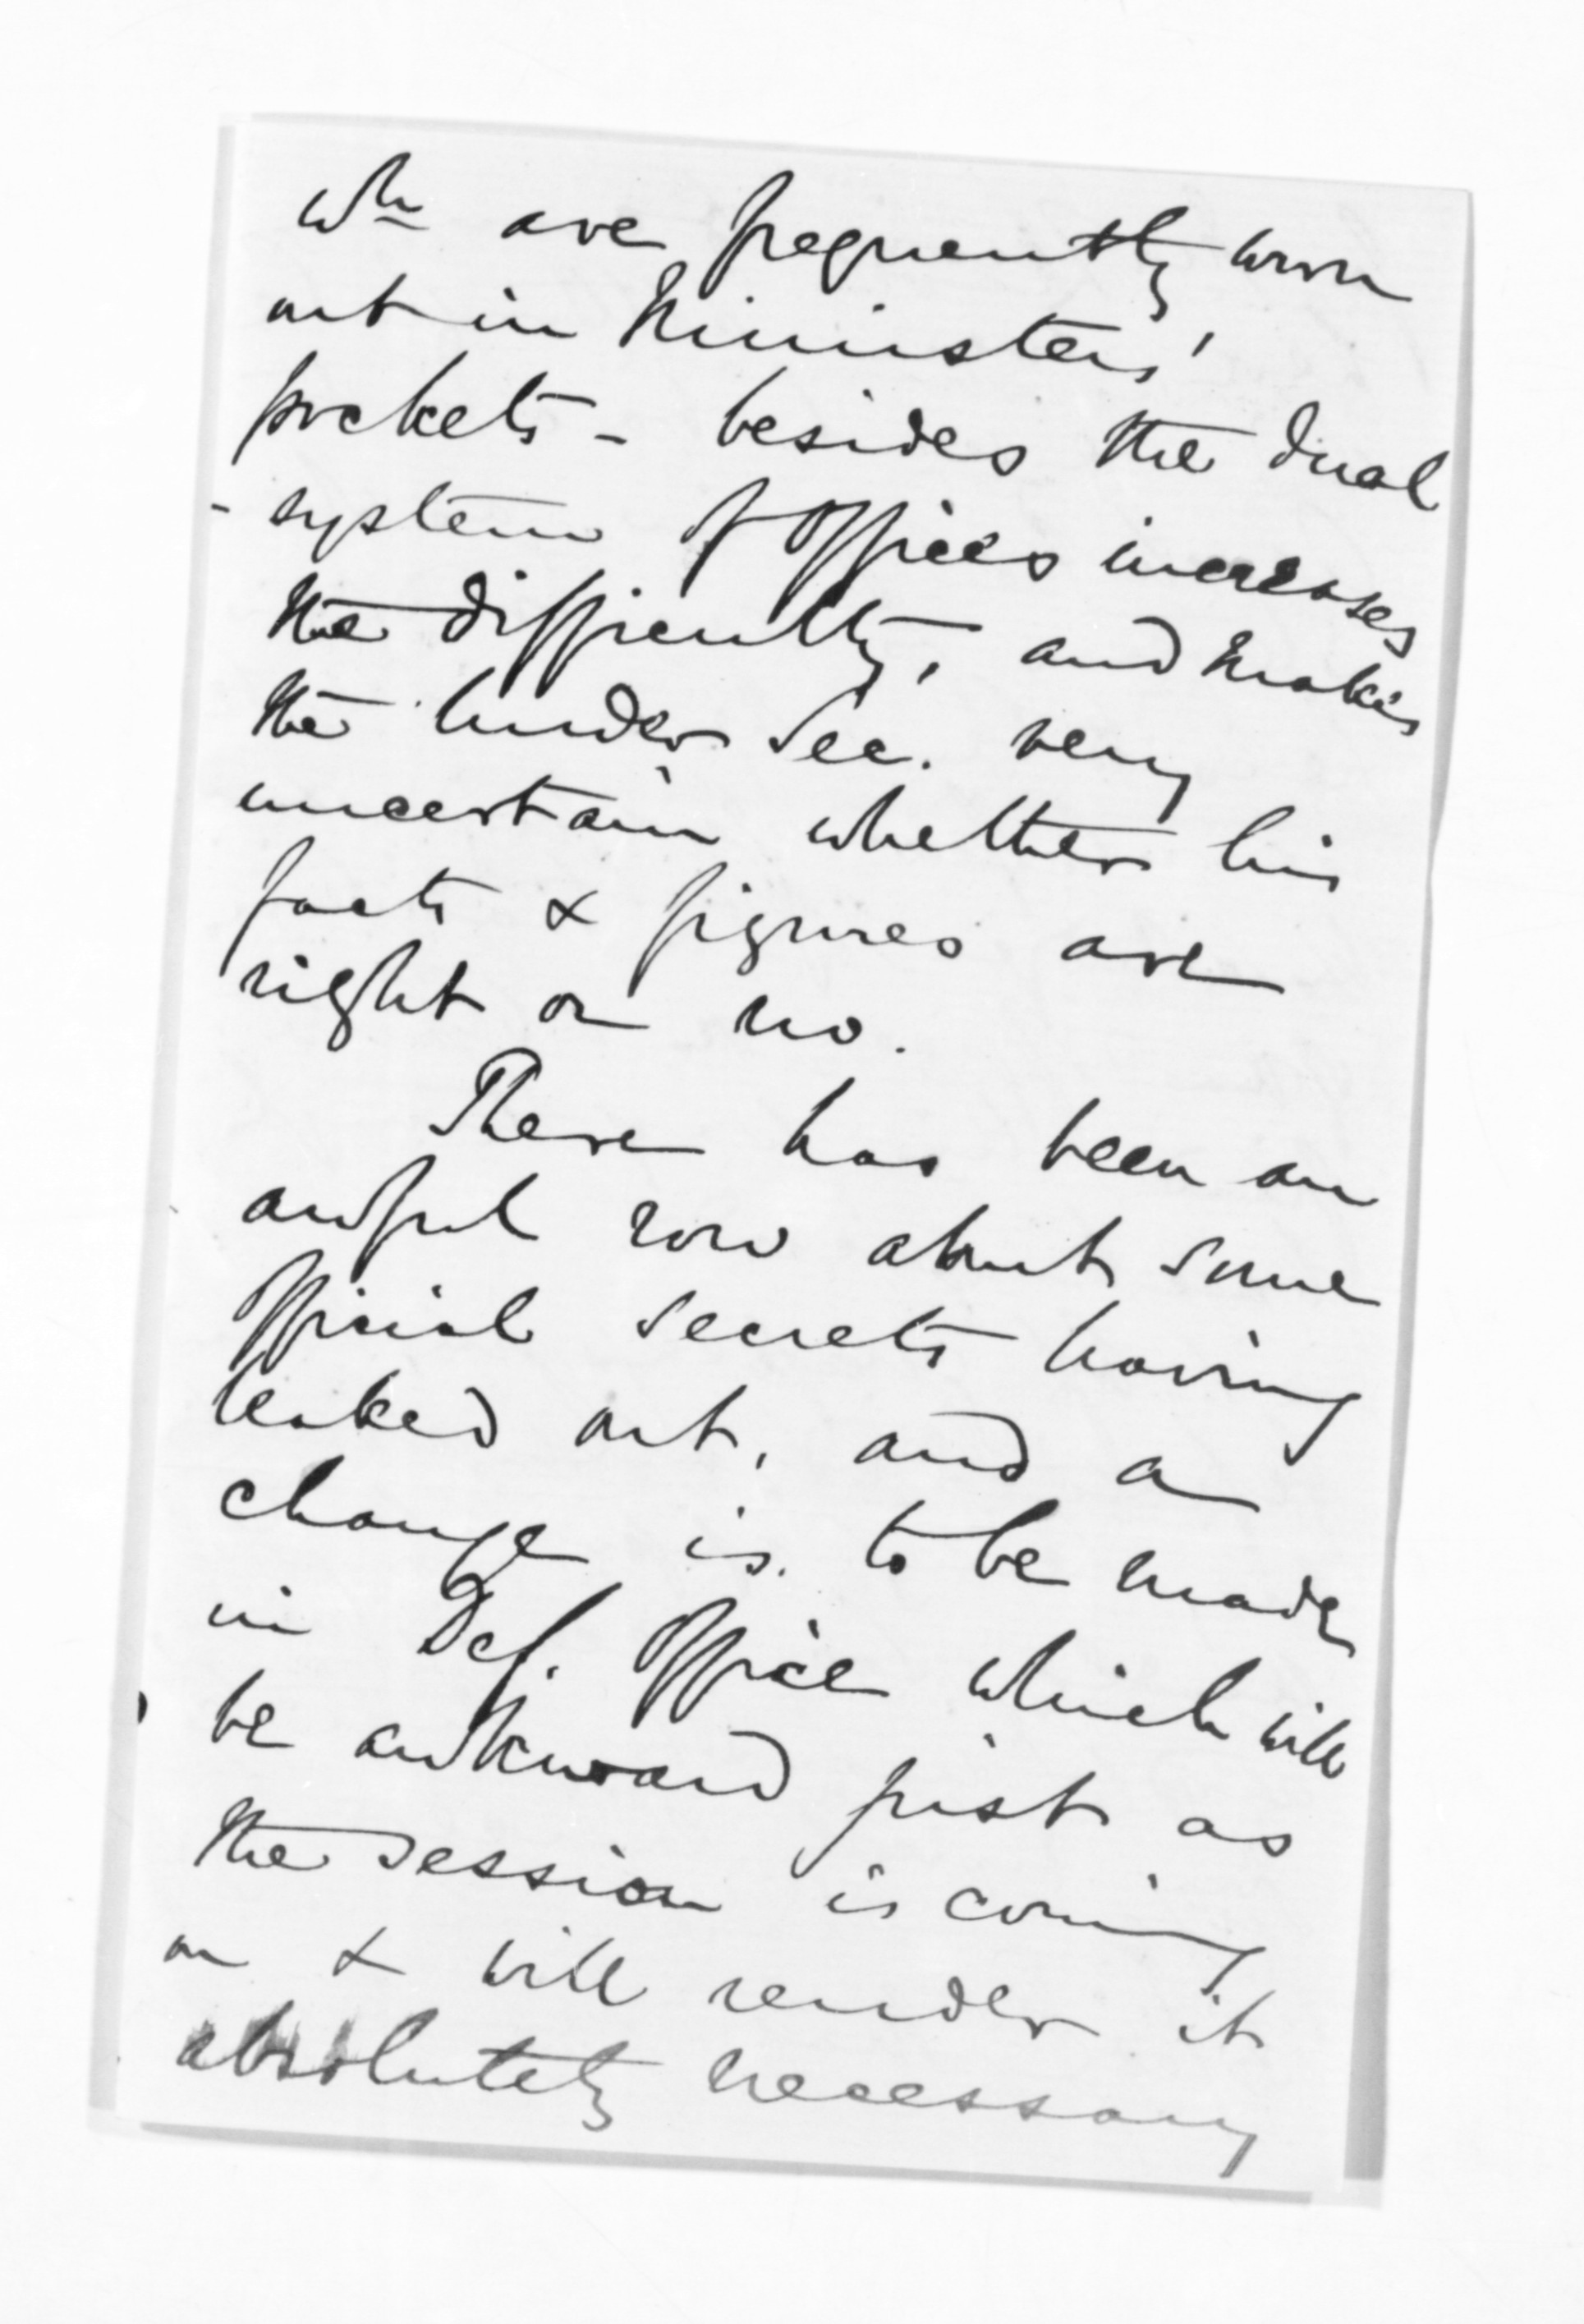 wh are frequently worn
out in Ministers'
pockets - besides the dual
- system of offices increases
the difficulty, and makes
the Under Sec. very
uncertain whether his
facts & figures are
right or no.
There has been an
awful row about some
official secrets having
leaked out, and a
change is to be made
in Def. Office which will
be awkward just as
the session is coming
on & will render it
absolutely necessary